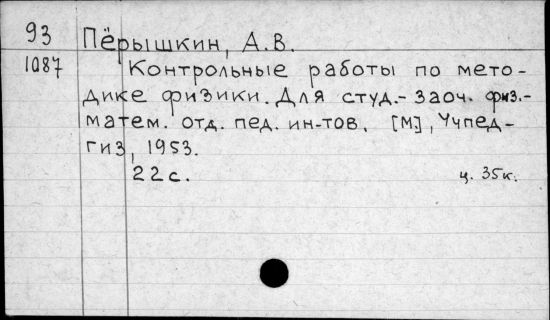 93 Пёрышкин, А.В.
1087 Контрольные работы по мето-
дике физики. Для студ.- заоч. физ.-
матем. отд. пед. ин-тов. [М], Учпед-
гиз, 1953.
22с. ц. 35к.